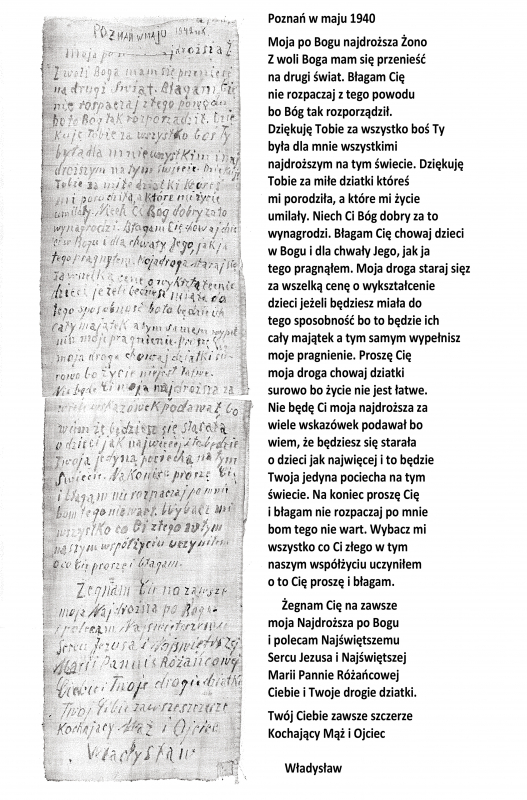 POZNAŃ W MAJU 1940 r.
Moja po jdroższa Ż
Z woli Boga mam się przenieść
na drugi świat. Błagam Cię
nie rozpaczaj z tego powodu
bo to Bóg tak rozporządził. Dzię
kuję tobie za wszystko boś ty
była dla mnie wszystkim i naj
droższym na tym świecie. Dziękuję
Tobie za miłe dziatki któreś
mi porodziła, a które mi życie
umilały. Niech Ci Bóg dobry za to
wynagrodzi. Błagam Cię chowaj dzie
ci w Bogu i dla chwały Jego, jak ja
tego pragnąłem. Moja droga staraj się
za wszelką cenę o wykształcenie
dzieci jeżeli będziesz miała do
tego sposobność bo to będzie ich
cały majątek a tym samem wypeł
nisz moje pragnienie. Proszę Cię
moja droga chowaj dziatki su-
rowo bo życie nie jest łatwe.
Nie będę Ci moja najdroższa za
wiele wskazówek podawał, bo
wiem że będziesz się starała
o dzieci jak najwięcej i to będzie
Twoja jedyna pociecha na tym
świecie. Na koniec proszę Cię
i błagam nie rozpaczaj po mnie
bom tego nie wart. Wybacz mi
wszystko co Ci złego w tym
naszym współżyciu uczyniłem
o co Cię proszę i błagam.
Żegnam Cię na zawsze
moja Najdroższa po Bogu
i polecam Najświętszemu
Sercu Jezusa i Najświętszej
Marii Pannie Różańcowej
Ciebie i Twoje drogie dziatki
Twój Ciebie zawsze szczerze
Kochający Mąż i Ojciec
Władysław
Poznań w maju 1940
Moja po Bogu najdroższa Żono
Z woli Boga mam się przenieść
na drugi świat. Błagam Cię
nie rozpaczaj z tego powodu
bo Bóg tak rozporządził.
Dziękuję Tobie za wszystko boś Ty
była dla mnie wszystkimi
najdroższym na tym świecie. Dziękuję
Tobie za miłe dziatki któreś
mi porodziła, a które mi życie
umilały. Niech Ci Bóg dobry za to
wynagrodzi. Błagam Cię chowaj dzieci
w Bogu i dla chwały Jego, jak ja
tego pragnąłem. Moja droga staraj sięz
za wszelką cenę o wykształcenie
dzieci jeżeli będziesz miała do
tego sposobność bo to będzie ich
cały majątek a tym samym wypełnisz
moje pragnienie. Proszę Cię
moja droga chowaj dziatki
surowo bo życie nie jest łatwe.
Nie będę Ci moja najdroższa za
wiele wskazówek podawał bo
wiem, że będziesz się starała
o dzieci jak najwięcej i to będzie
Twoja jedyna pociecha na tym
świecie. Na koniec proszę Cię
i błagam nie rozpaczaj po mnie
bom tego nie wart. Wybacz mi
wszystko co Ci złego w tym
naszym współżyciu uczyniłem
o to Cię proszę i błagam.
Żegnam Cię na zawsze
moja Najdroższa po Bogu
i polecam Najświętszemu
Sercu Jezusa i Najświętszej
Marii Pannie Różańcowej
Ciebie i Twoje drogie dziatki.
Twój Ciebie zawsze szczerze
Kochający Mąż i Ojciec
Władysław